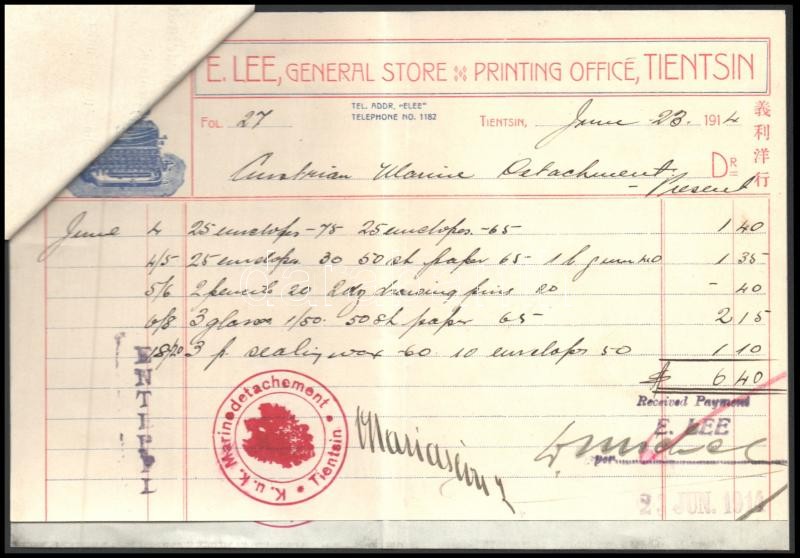 E. LEE, GENERAL STORE PRINTING OFFICE, TIENTSIN
TEL. ADDR. "ELEE"
TELEPHONE NO. 1182
FOL. 27
TIENTSIN, June 23. 1914
義利洋行
Austrian Marine Detachment. DR
- Present
June 4 25 envelops - 75 25 envelopes - 65 1 40
4/5 25 envelops 30 50 sh paper 65 - 1 b gum 40 1 35
5/6 2 pencils 20 2 dz drawing pins 20 - 40
6/8 3 glasses 1/50. 50 sh paper 65 2 15
18/20 3 p. sealing wax - 60 10 envelops 50 1 10
$ 6 40
Received Payment
E. LEE
per
K. u. K. Marinedetachement • Tientsin •
23 JUN. 1914